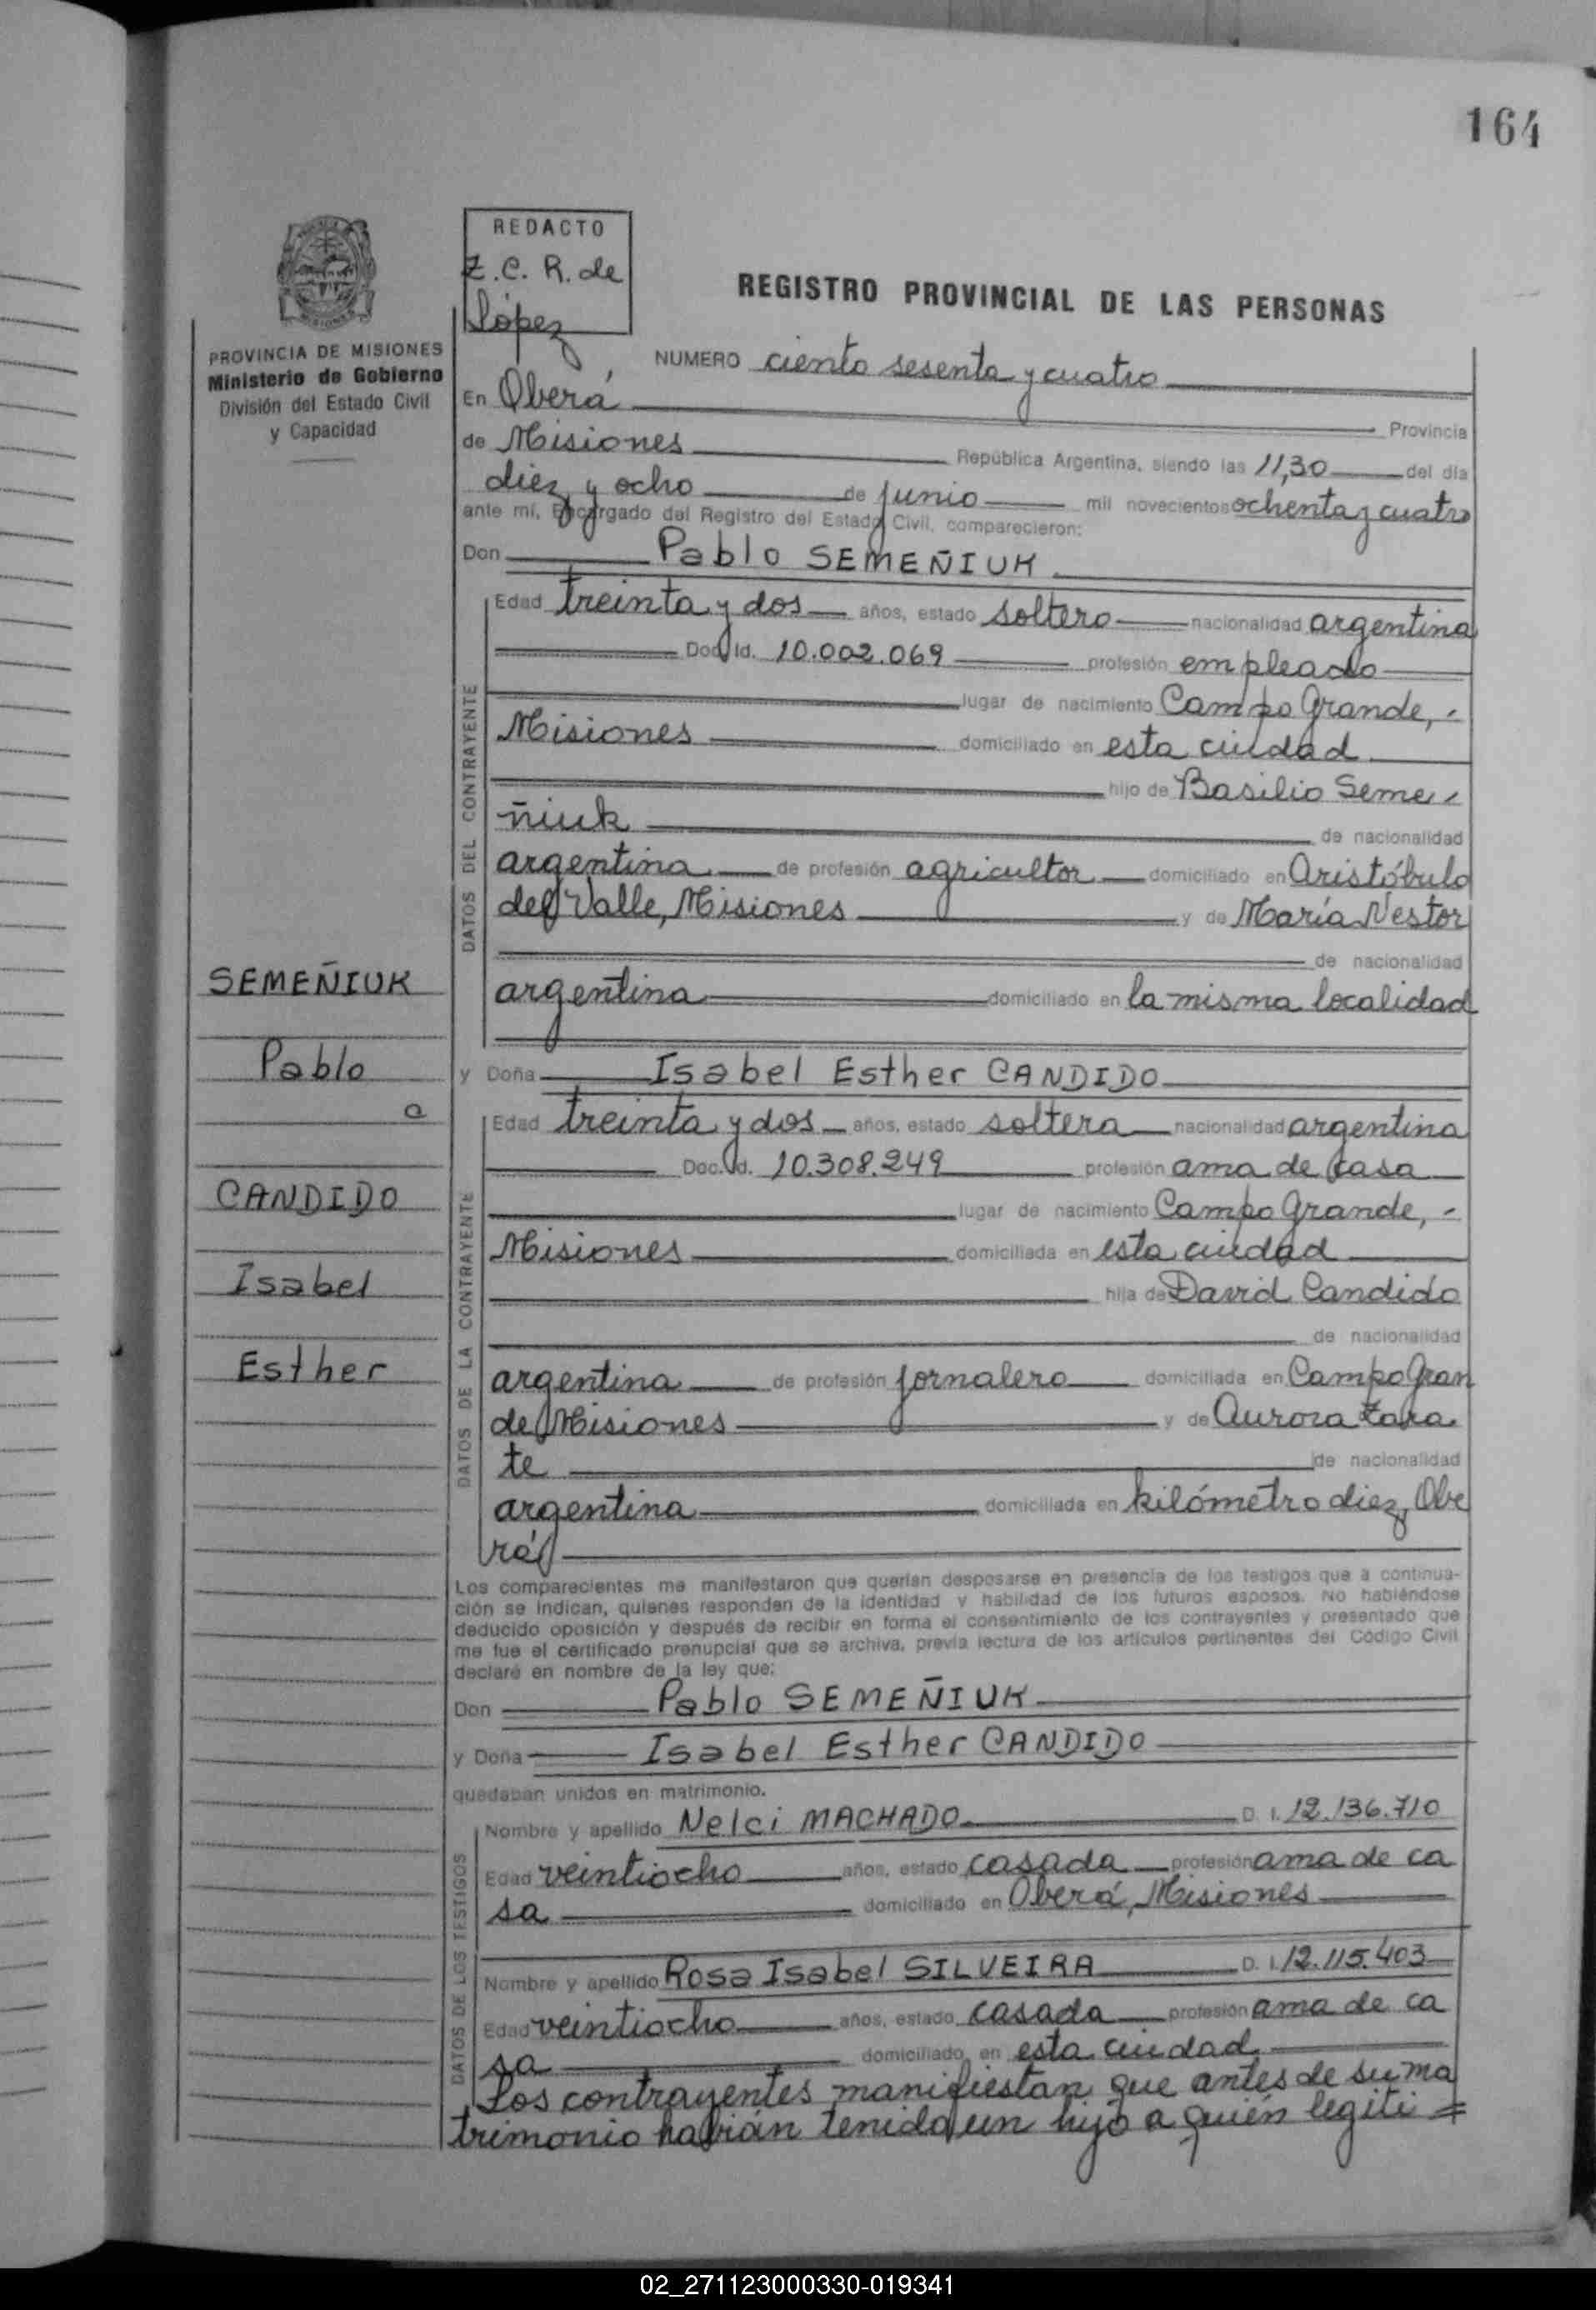 164
REDACTO
Z. C. R. de
López
REGISTRO PROVINCIAL DE LAS PERSONAS
MISIONES
PROVINCIA DE MISIONES
Ministerio de Gobierno
División del Estado Civil
y Capacidad
NUMERO ciento sesenta y cuatro
En Oberá
Provincia
de Misiones República Argentina, siendo las 11,30 del día
diez y ocho de junio mil novecientos ochenta y cuatro
ante mí, Encargado del Registro del Estado Civil, comparecieron:
Don Pablo SEMEÑIUK
DATOS DEL CONTRAYENTE
Edad treinta y dos años, estado soltero nacionalidad argentina
Doc. Id. 10.002.069 profesión empleado
lugar de nacimiento Campo Grande, -
Misiones domiciliado en esta ciudad
hijo de Basilio Seme-
ñiuk de nacionalidad
argentina de profesión agricultor domiciliado en Aristóbulo
del Valle, Misiones y de María Nestor
de nacionalidad
argentina domiciliado en la misma localidad
SEMEÑIUK
Pablo
a
CANDIDO
Isabel
Esther
y Doña Isabel Esther CANDIDO
DATOS DE LA CONTRAYENTE
Edad treinta y dos años, estado soltera nacionalidad argentina
Doc. Id. 10.308.249 profesión ama de casa
lugar de nacimiento Campo Grande, -
Misiones domiciliada en esta ciudad
hija de David Candido
de nacionalidad
argentina de profesión jornalero domiciliada en Campo Gran
de, Misiones y de Aurora Zara
te de nacionalidad
argentina domiciliada en kilómetro diez, Obe
rá
Los comparecientes me manifestaron que querían desposarse en presencia de los testigos que a continua-
ción se indican, quienes responden de la identidad y habilidad de los futuros esposos. No habiéndose
deducido oposición y después de recibir en forma el consentimiento de los contrayentes y presentado que
me fue el certificado prenupcial que se archiva, previa lectura de los artículos pertinentes del Código Civil
declaré en nombre de la ley que:
Don Pablo SEMEÑIUK
y Doña Isabel Esther CANDIDO
quedaban unidos en matrimonio.
DATOS DE LOS TESTIGOS
Nombre y apellido Nelci MACHADO D. I. 12.136.710
Edad veintiocho años, estado casada profesión ama de ca
sa domiciliado en Oberá, Misiones
Nombre y apellido Rosa Isabel SILVEIRA D. I. 12.115.403
Edad veintiocho años, estado casada profesión ama de ca
sa domiciliado en esta ciudad
Los contrayentes manifiestan que antes de su ma
trimonio habían tenido un hijo a quién legiti =
02_271123000330-019341